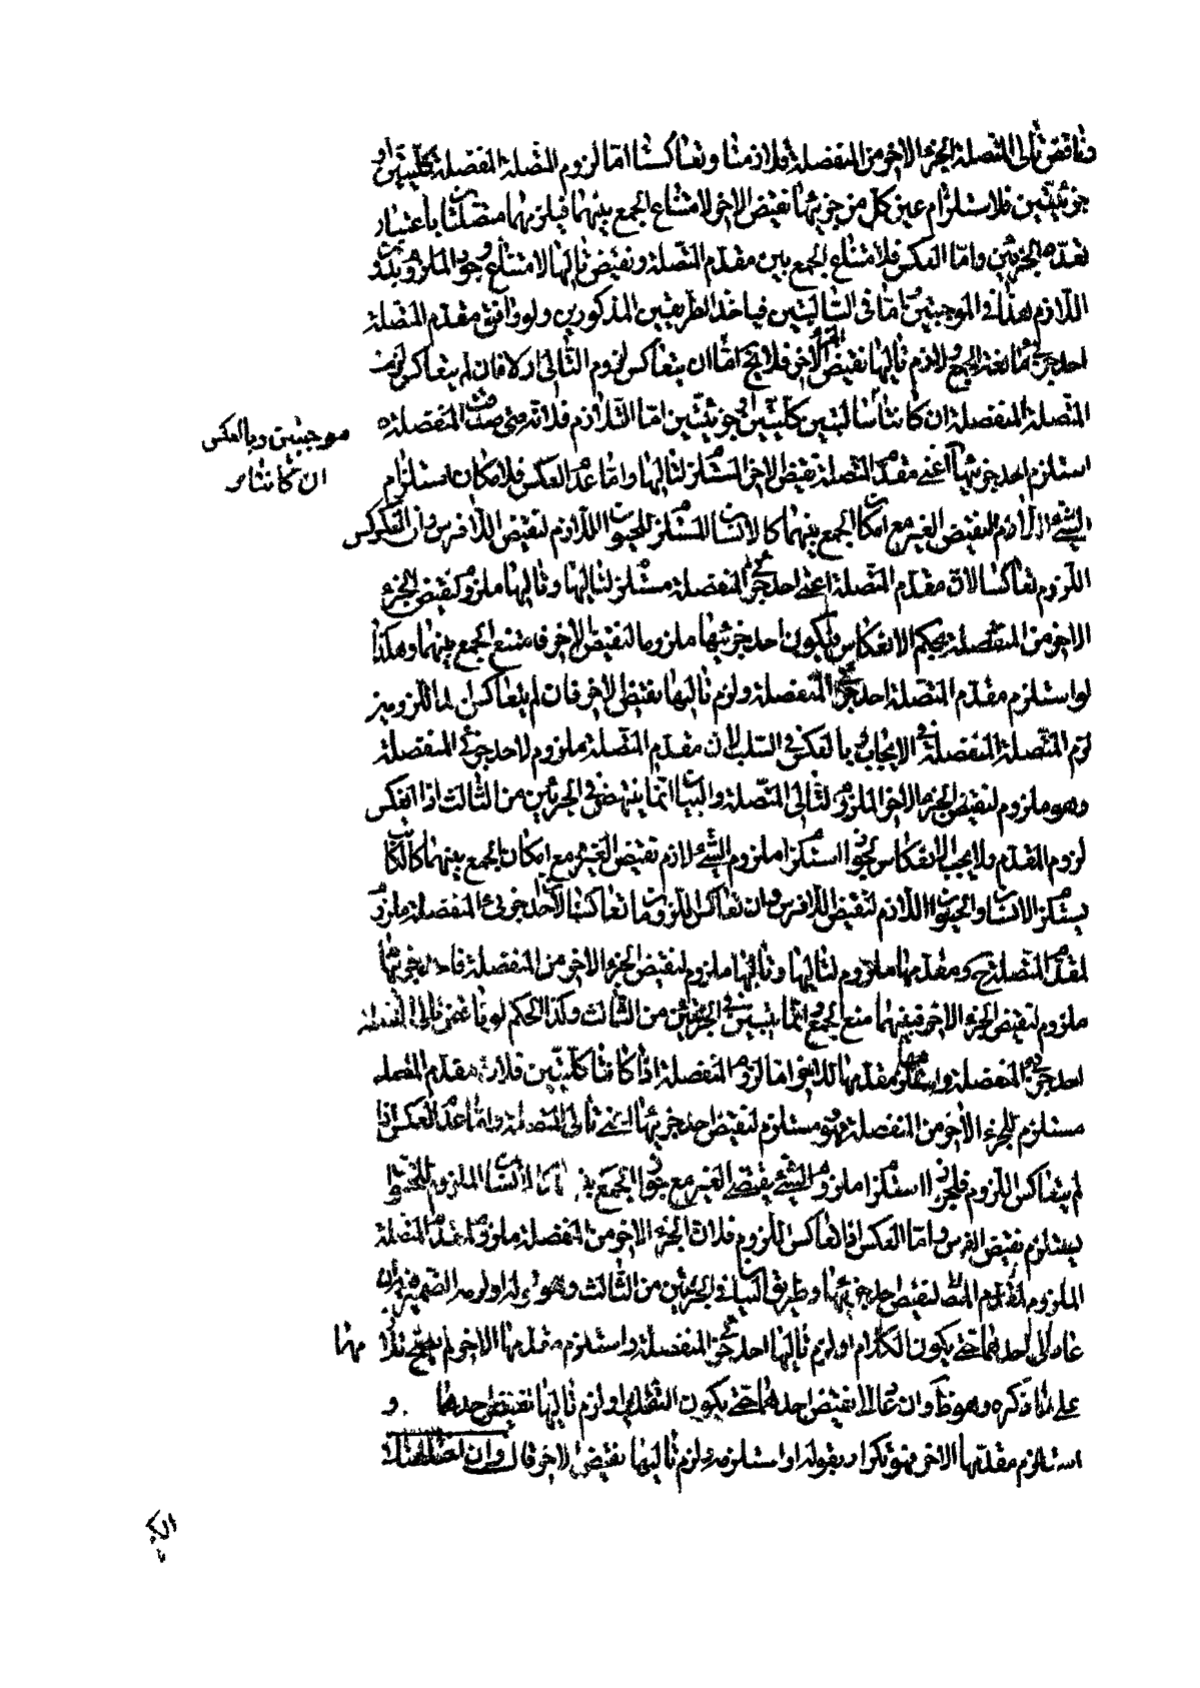 وناقض تالى المتصلة الجزء الاخر من المنفصلة تلازمتا وتعاكستا اما لزوم المتصلة المنفصلة كليتين او
جزئيتين فلاستلزام عين كل من جزئيها نقيض الاخر لامتناع الجمع بينهما فيلزمهما متصلتان باعتبار
تعدد الجزئين واما العكس فلامتناع الجمع بين مقدم المتصلة ونقيض تاليها لامتناع وجود الملزوم بدون
اللازم هذا فى الموجبتين اما فى السالبتين فباخذ الطريقين المذكورين ولو وافق مقدم المتصلة
احد جزئى مانعة الجمع ولازم تاليها نقيض الجزء الاخر فلا يخ اما ان يتعاكس لزوم التالى او لا فان لم يتعاكس لزمت
المتصلة المنفصلة ان كانتا سالبتين كليتين او جزئيتين اما التلازم فلانه متى صدقت المنفصلة
موجبتين وبالعكس
ان كانتا
استلزم احد جزئيها اعنى مقدم المتصلة نقيض الاخر المستلزم لتاليها واما عدم العكس فلامكان استلزام
الشىء اللازم لنقيض الغير مع امكان الجمع بينهما كالانسان المستلزم للحيوان اللازم لنقيض اللافرس وان انعكس
اللزوم تعاكستا لان مقدم المتصلة اعنى احد جزئى المنفصلة مستلزم لتاليها وتاليها ملزوم لنقيض الجزء
الاخر من المنفصلة بحكم الانعكاس فيكون احد جزئيها ملزوما لنقيض الاخر فامتنع الجمع بينهما وهكذا
لو استلزم مقدم المتصلة احد جزئى المنفصلة ولزم تاليها نقيض الاخر فان لم يتعاكس
لزم المتصلة المنفصلة فى الايجاب وبالعكس فى السلب لان مقدم المتصلة ملزوم لاحد جزئى المنفصلة
وهو ملزوم لنقيض الجزء الاخر الملزوم لتالى المتصلة والبيان انما ينتهض فى الجزئين من الثالث اذا انعكس
لزوم المقدم ولا يجب الانعكاس لجواز استلزام ملزوم الشىء لازم نقيض الغير مع امكان الجمع بينهما كالكاتب
يستلزم الانسان والحيوان اللازم لنقيض اللافرس وان تعاكس اللزومان تعاكستا لان احد جزئى المنفصلة ملزوم
لمقدم المتصلة ح ومقدمها ملزوم لتاليها وتاليها ملزوم لنقيض الجزء الاخر من المنفصلة فاحد جزئيها
ملزوم لنقيض الجزء الاخر فبينهما منع الجمع وانما يتبين فى الجزئيتين من الثالث وكذا الحكم لو ناقض تالى المتصلة
احد جزئى المنفصلة واستلزم مقدمها للاخر اما لزوم المنفصلة اذا كانتا كليتين فلان مقدم المتصلة
مستلزم للجزء الاخر من المنفصلة وهو مستلزم لنقيض احد جزئيها اعنى تالى المتصلة واما عدم العكس اذا
لم يتعاكس اللزوم فلجواز استلزام ملزوم الشىء نقيض الغير مع جواز الجمع فان الانسان الملزوم للحيوان
يستلزم نقيض الفرس واما العكس اذا تعاكس اللزوم فلان الجزء الاخر من المنفصلة ملزوم لمقدم المتصلة
الملزوم لنقيض احد جزئيها وطريق البيان فى الجزئيتين من الثالث وهو قوله او لزم الضمير فيه ان
عاد الى احدهما حتى يكون الكلام او لزم تاليها احد جزئى المنفصلة واستلزم مقدمها الاخر لم يصح تلازمهما
على ما ذكره وهو ظ وان عاد الى نقيض احدهما حتى يكون التقدير او لزم تاليها نقيض احدهما و
استلزم مقدمها الاخر فهو تكرار بقوله او استلزمه ولزم تاليها نقيض الاخر قال وان